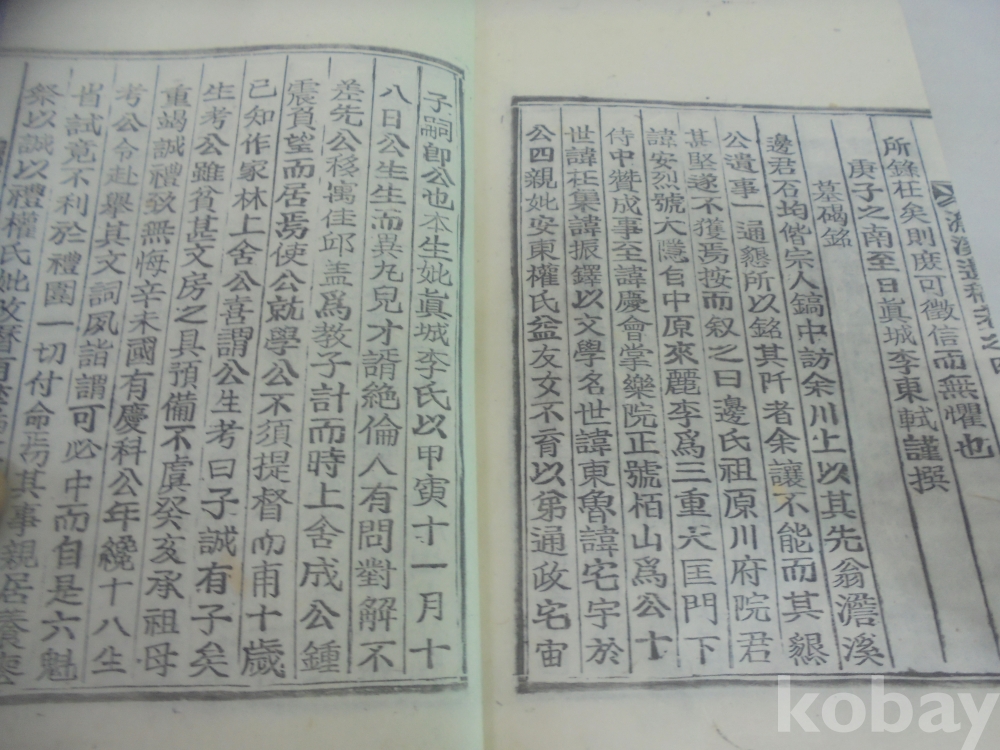 所錄在矣則庶可徵信而無懼也
庚子之南至日眞城李東軾謹撰
墓碣銘
邊君石均偕宗人鎬中訪余川上以其先翁澹溪
公遺事一通懇所以銘其阡者余讓不能而其懇
甚堅遂不獲焉按而叙之曰邊氏祖原川府院君
諱安烈號大隱自中原來麗季爲三重大匡門下
侍中贊成事至諱慶會掌樂院正號栢山爲公十
世諱在集諱振鐸以文學名世諱東魯諱宅宇於
公四親妣安東權氏益友女不育以弟通政宅宙
子嗣卽公也本生妣眞城李氏以甲寅十一月十
八日公生生而異凡兒才諝絶倫人有問對解不
差先公移寓佳邱盖爲教子計而時上舍成公鍾
震負望而居焉使公就學公不須提督而甫十歲
已知作家林上舍公喜謂公生考曰子誠有子矣
生考公雖貧甚文房之具預備不虞癸亥承祖母
重竭誠禮致無悔辛未國有慶科公年纔十八生
考公令赴舉其文詞夙詣謂可必中而自是六魁
省試竟不利於禮圍一切付命焉其事親居養喪
祭以誠以禮權氏妣
kobay